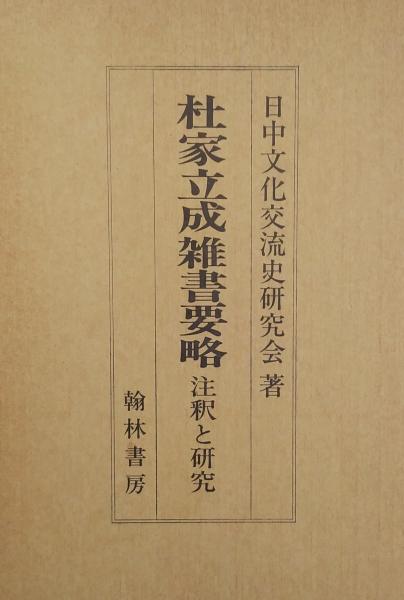 日中文化交流史研究会 著
杜家立成雑書要略 注釈と研究
翰林書房